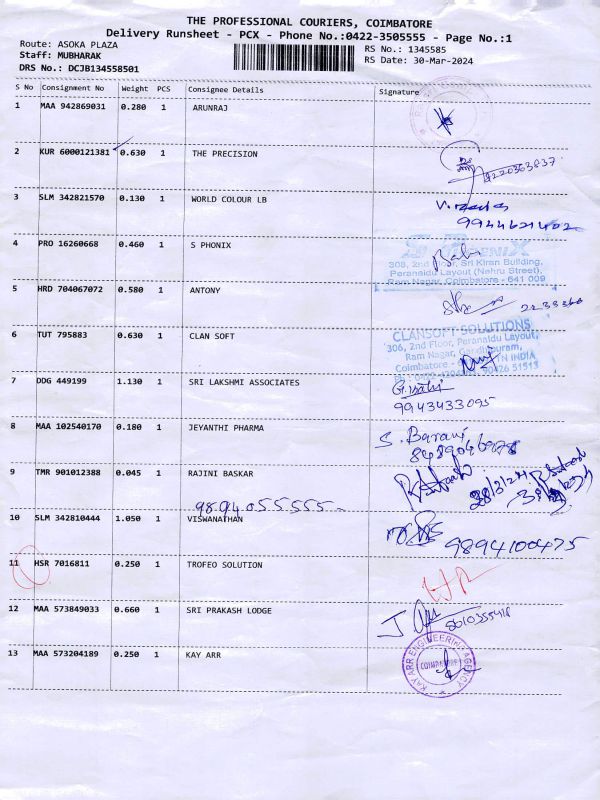 THE PROFESSIONAL COURIERS, COIMBATORE
Delivery Runsheet - PCX - Phone No.:0422-3505555 - Page No.:1
Route: ASOKA PLAZA
RS No.: 1345585
Staff: MUBHARAK
RS Date: 30-Mar-2024
DRS No.: DCJB134558501
S No Consignment No Weight PCS Consignee Details Signature
1 MAA 942869031 0.280 1 ARUNRAJ
2 KUR 6000121381 0.630 1 THE PRECISION
9220363837
3 SLM 342821570 0.130 1 WORLD COLOUR LB
9944621402
4 PRO 16260668 0.460 1 S PHONIX
308, 2nd Floor, Sri Kiran Building,
Peranaidu Layout (Nehru Street),
Ram Nagar, Coimbatore - 641 009
5 HRD 704067072 0.580 1 ANTONY
6 TUT 795883 0.630 1 CLAN SOFT
CLANSOFT SOLUTIONS
306, 2nd Floor, Peranaidu Layout,
Ram Nagar,
Coimbatore - TN INDIA
7 DDG 449199 1.130 1 SRI LAKSHMI ASSOCIATES
9943433095
8 MAA 102540170 0.180 1 JEYANTHI PHARMA
S. Barani
9 TMR 901012388 0.045 1 RAJINI BASKAR
9894055555
10 SLM 342810444 1.050 1 VISWANATHAN
9894100475
11 HSR 7016811 0.250 1 TROFEO SOLUTION
12 MAA 573849033 0.660 1 SRI PRAKASH LODGE
8610355418
13 MAA 573204189 0.250 1 KAY ARR
KAY ARR ENGINEERING AGENCY
COIMBATORE